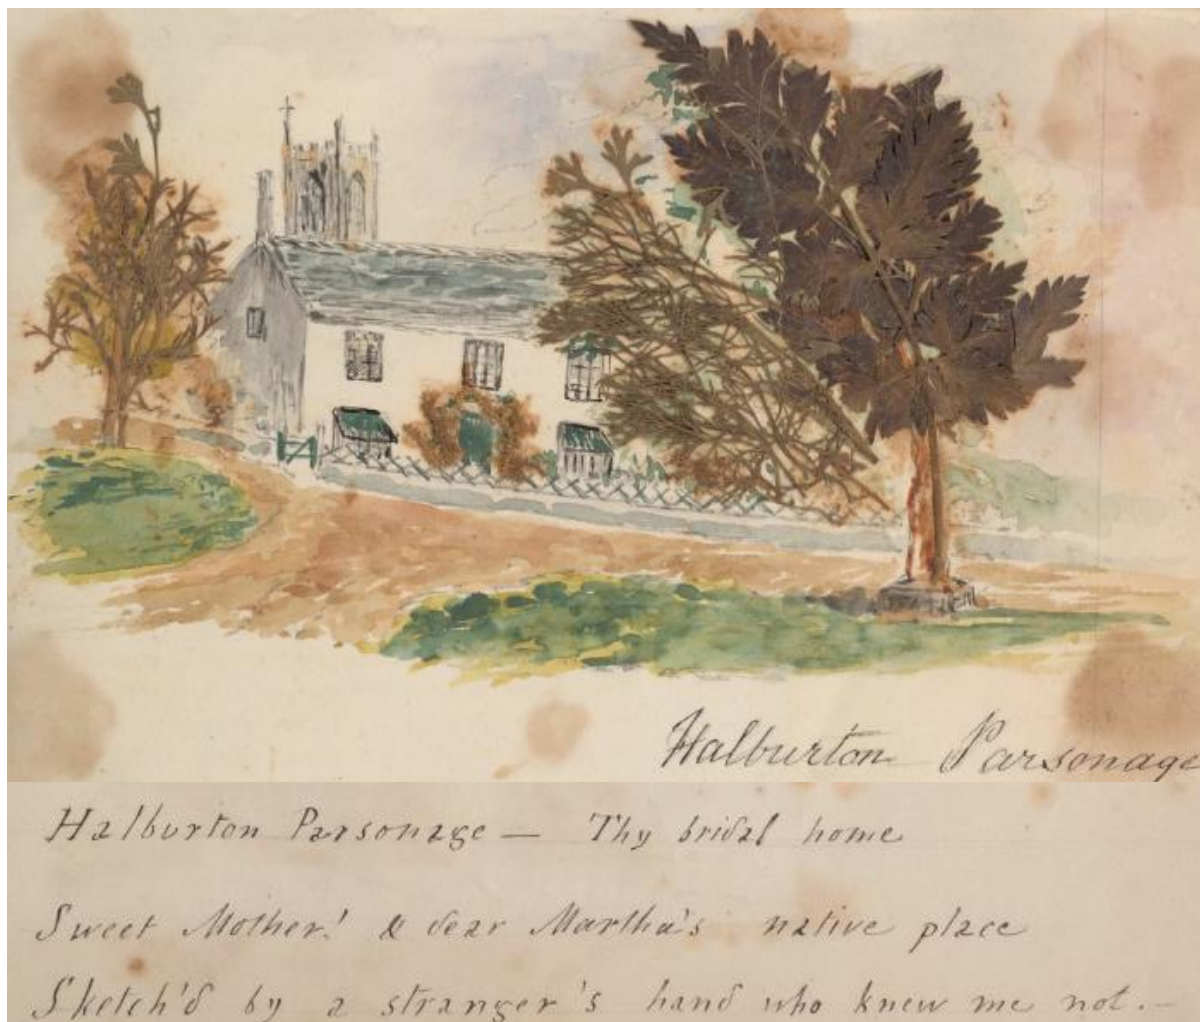 Halburton Parsonage
Halburton Parsonage — Thy bridal home
Sweet Mother! & dear Martha's native place
Sketch'd by a stranger's hand who knew me not. —